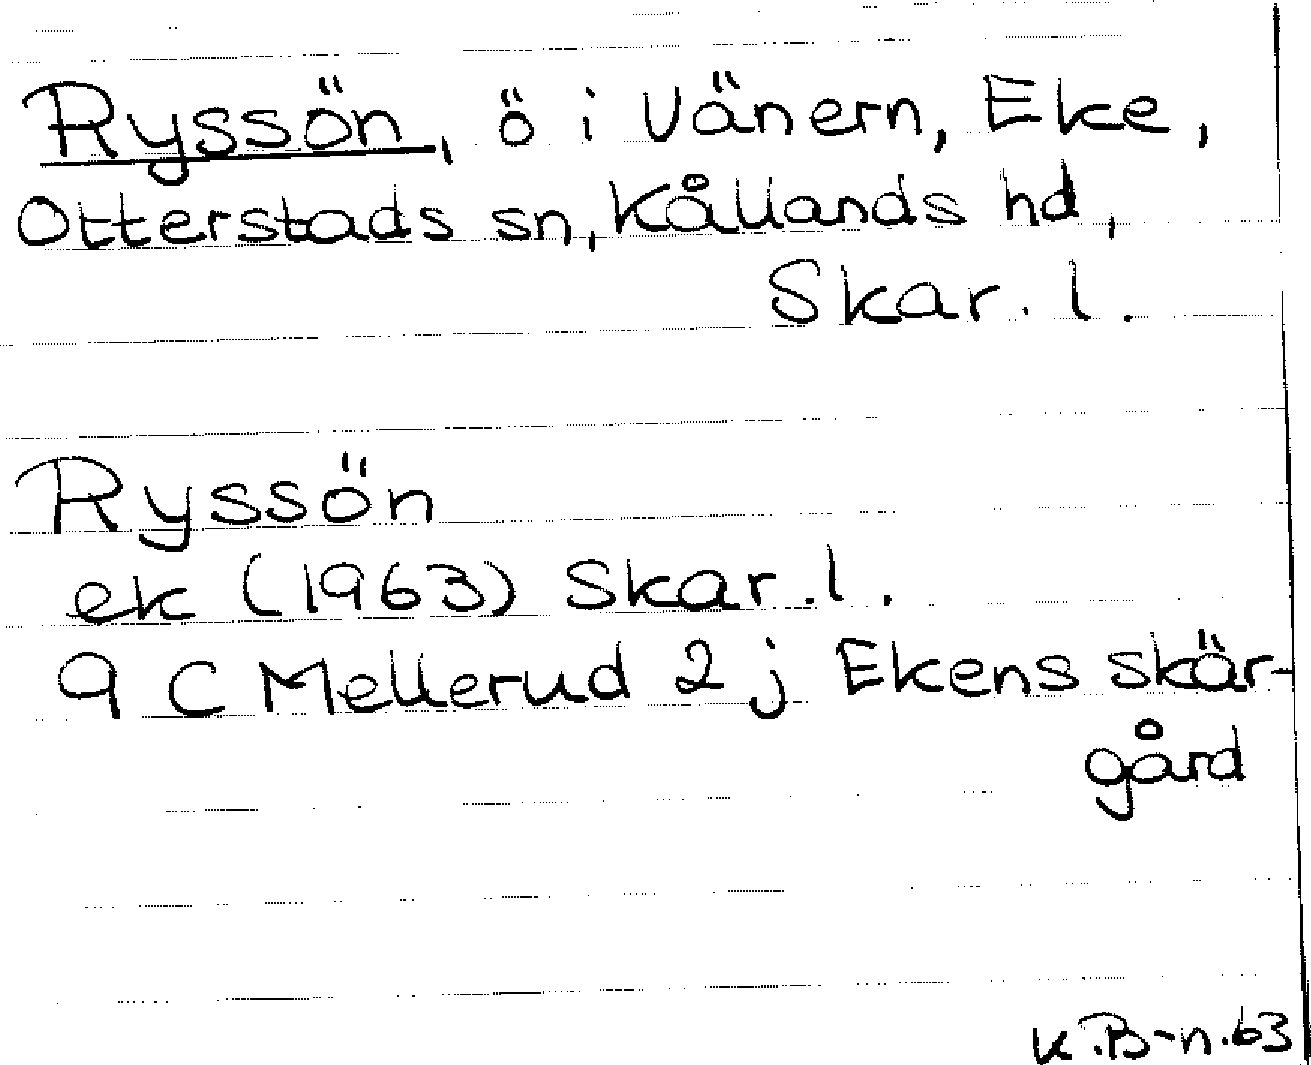 Ryssön, ö i Vänern, Eke,
Otterstads sn, Kållands hd,
Skar. l.
Ryssön
ek (1963) Skar. l.
9 C Mellerud 2 j Ekens skär-
gård
K.B-n.63